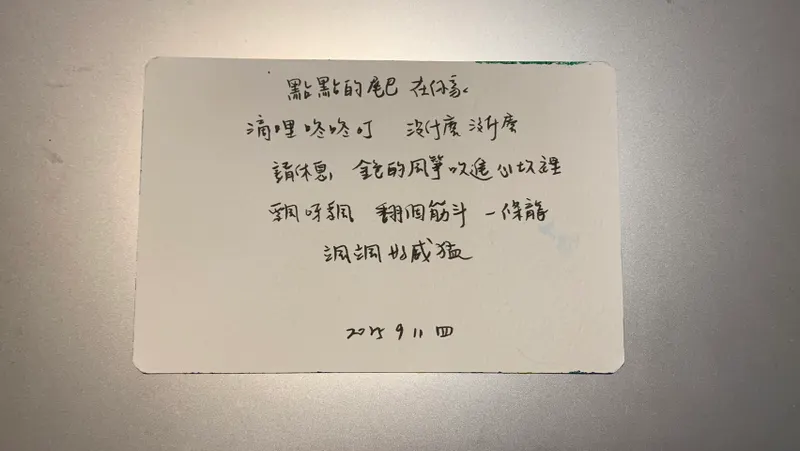 點點的尾巴 在你家
滴哩咚咚叮 沒什麼 沒什麼
請休息 金色的風箏吹進小坎裡
飄呀飄 翻個筋斗 一條龍
颯颯好威猛
2025 9 11 四